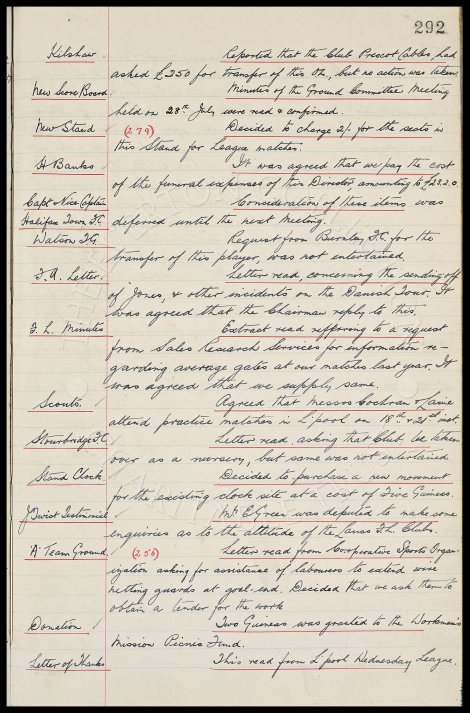 292
Kilshaw Reported that the Club Prescot Cables, had
asked £350 for transfer of this Otr, but no action was taken.
New Score Board Minutes of the Ground Committee Meeting
held on 28th July were read & confirmed.
New Stand (279) Decided to charge 2/- for the seats in
this Stand for League matches.
H Banks It was agreed that we pay the cost
of the funeral expenses of this Director amounting to £22.2.0.
Capt & Vice Captain Consideration of these items was
Halifax Town F.C. deferred until the next Meeting.
Watson T.G. Request from Burnley F.C. for the
transfer of this player, was not entertained.
F.A. Letter. Letter read, concerning the sending off
of Jones, & other incidents on the Danish Tour. It
was agreed that the Chairman reply to this.
F. L. Minutes Extract read referring to a request
from Sales Research Services for information re-
garding average gates at our matches last year. It
was agreed that we supply same.
Scouts. Agreed that Messrs Cochran &
attend practice matches in L'pool on 18th & 21st inst.
Stourbridge F.C. Letter read asking that Club be taken
over as a nursery, but same was not entertained
Stand Clock Decided to purchase a new movement
for the existing clock site at a cost of Five Guineas.
Testimonial Mr E. Green was deputed to make some
enquiries as to the attitude of the Lancs F.L. Clubs.
'A' Team Ground. (256) Letter read from Co-operative Sports Organ-
ization asking for assistance of labourers to extend wire
netting guards at goal-end. Decided that we ask them to
obtain a tender for the work
Donation Two Guineas was granted to the Workmen's
Mission Picnic Fund.
Letter of Thanks This read from L'pool Wednesday League.